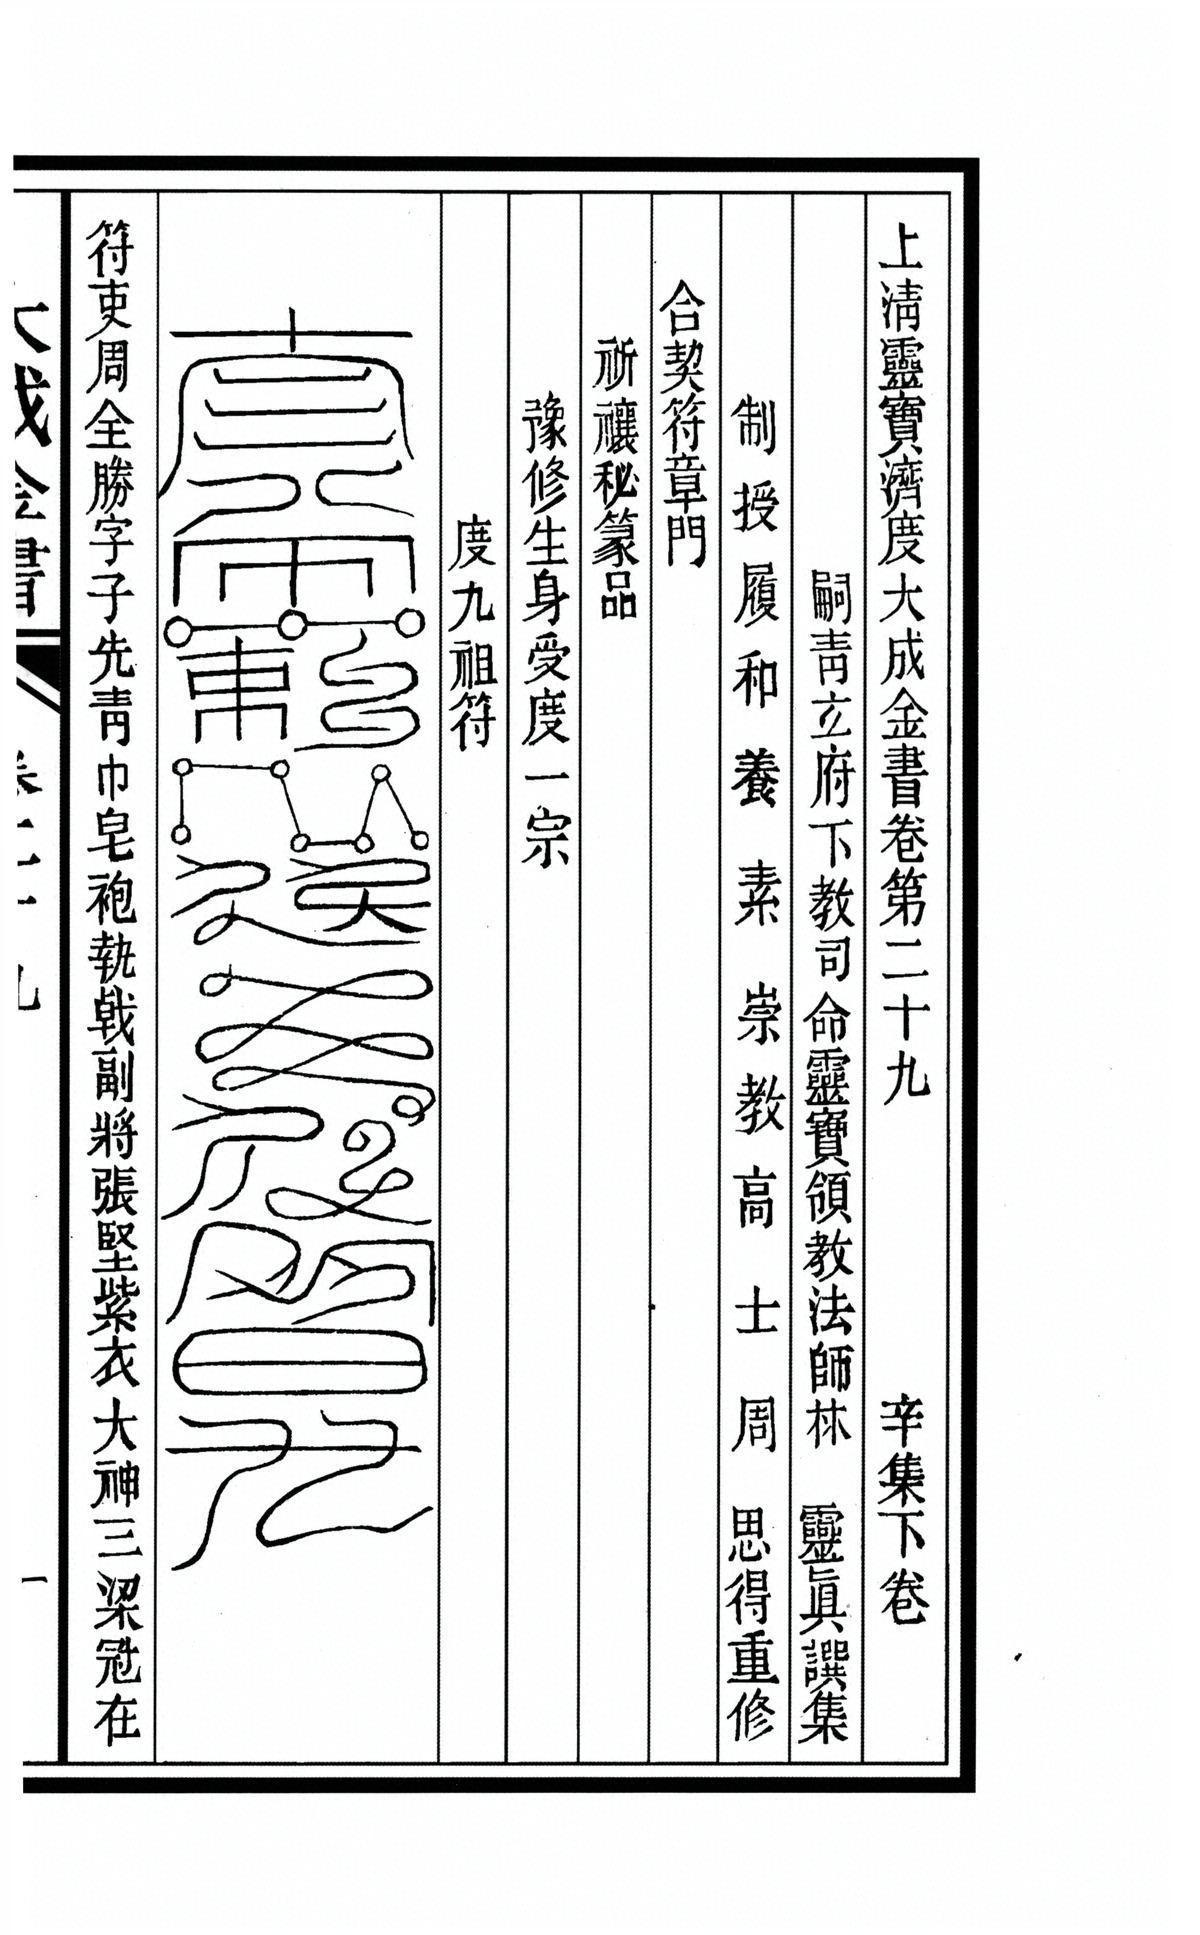 上清靈寶濟度大成金書卷第二十九 辛集下卷
嗣青玄府下教司命靈寶領教法師林 靈眞譔集
制授履和養素崇教高士周 思得重修
合契符章門
祈禳秘篆品
豫修生身受度一宗
度九祖符
符吏周全勝字子先青巾皂袍執戟副將張堅紫衣大神三梁冠在
大成金書 卷二十九 一